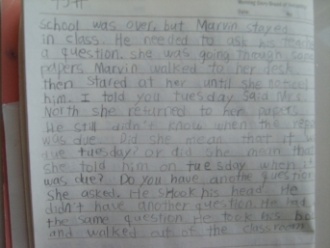 school was over, but Marvin stayed
in class. He needed to ask his
a question. she was going through some
papers. Marvin walked to her desk
then stared at her until she noticed
him. I told you tuesday said Mrs.
North she returned to her papers.
He still didn't know when the
was due. Did she mean that it
due tuesday? or did she mean that
she told him on tuesday when it
was due? Do you have another question
she asked. He shook his head. He
didn't have another question. He had
the same question. He took his
and walked out of the classroom